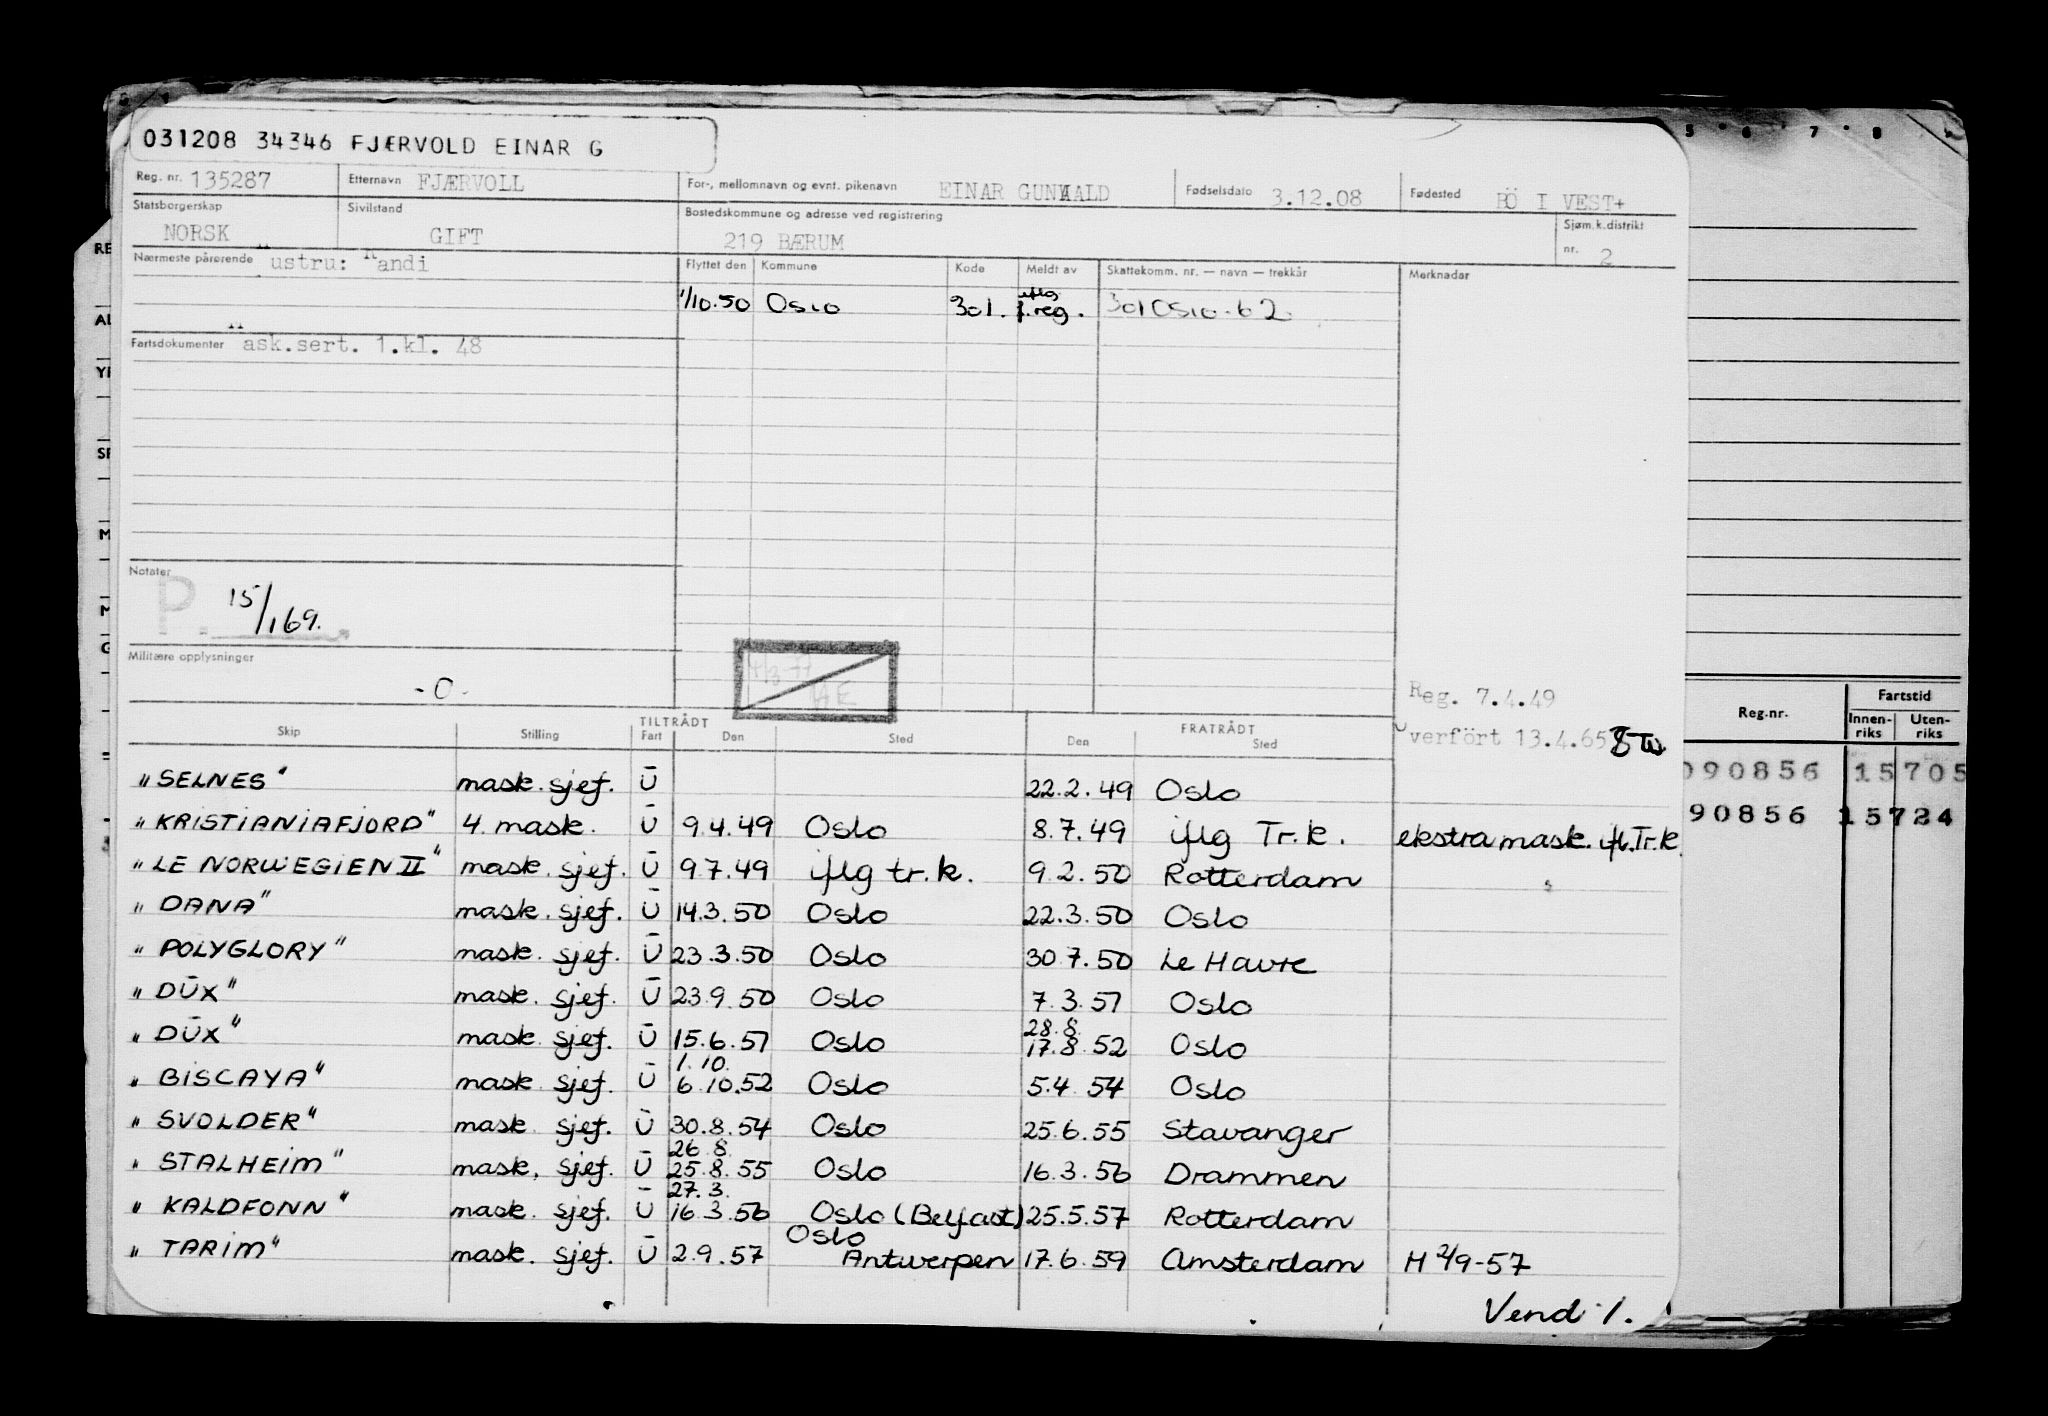 031208 34346 FJÆRVOLD EINAR G
Reg. nr. 135287 Etternavn FJÆRVOLL For-, mellomnavn og evnt. pikenavn EINAR GUNVALD Fødselsdato 3.12.08 Fødested BÖ I VEST+
Statsborgerskap NORSK Sivilstand GIFT Bostedskommune og adresse ved registrering 219 BÆRUM Sjøm.k.distrikt nr. 2
Nærmeste pårørende ustru: Randi Flyttet den Kommune Kode Meldt av Skattekomm. nr. — navn — trekkår Merknader
1/10.50 Oslo 301. iflg f.reg. 301 Oslo - 62
Fartsdokumenter ask.sert. 1.kl. 48
Notater
P. 15/1 69.
Militære opplysninger
-0-
Reg. 7.4.49
verfört 13.4.65
TILTRÅDT FRATRÅDT
Skip Stilling Fart Den Sted Den Sted
"SELNES" mask. sjef. U 22.2.49 Oslo
"KRISTIANIAFJORD" 4. mask. U 9.4.49 Oslo 8.7.49 iflg Tr.k. ekstra mask. ifl. Tr.k.
"LE NORWEGIEN II" mask. sjef. U 9.7.49 iflg tr.k. 9.2.50 Rotterdam
"DANA" mask. sjef. U 14.3.50 Oslo 22.3.50 Oslo
"POLYGLORY" mask. sjef. U 23.3.50 Oslo 30.7.50 Le Havre
"DUX" mask. sjef. U 23.9.50 Oslo 7.3.51 Oslo
28.8.
"DUX" mask. sjef. U 15.6.51 Oslo 17.8.52 Oslo
1.10.
"BISCAYA" mask. sjef. U 6.10.52 Oslo 5.4.54 Oslo
"SVOLDER" mask. sjef. U 30.8.54 Oslo 25.6.55 Stavanger
26.8.
"STALHEIM" mask. sjef. U 25.8.55 Oslo 16.3.56 Drammen
27.3.
"KALDFONN" mask. sjef. U 16.3.56 Oslo (Belfast) 25.5.57 Rotterdam
Oslo
"TARIM" mask. sjef. U 2.9.57 Antwerpen 17.6.59 Amsterdam H 2/9-57
Vend /.
5 6 7 8
RE
AL
SP
M
M
G
Reg.nr. Fartstid
Innen-riks Uten-riks
090856 15705
90856 15724